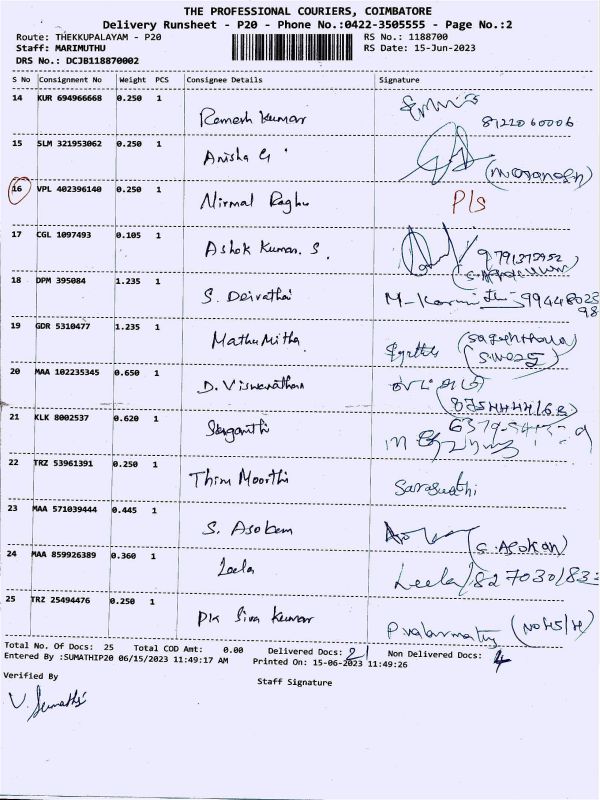 THE PROFESSIONAL COURIERS, COIMBATORE
Delivery Runsheet - P20 - Phone No.:0422-3505555 - Page No.:2
Route: THEKKUPALAYAM - P20 RS No.: 1188700
Staff: MARIMUTHU RS Date: 15-Jun-2023
DRS No.: DCJB118870002
S No Consignment No Weight PCS Consignee Details Signature
14 KUR 694966668 0.250 1 Ramesh Kumar 8122060006
15 SLM 321953062 0.250 1 Anisha G
16 VPL 402396140 0.250 1 Nirmal Raghu P/s
17 CGL 1097493 0.105 1 Ashok Kumar. S. 9791372952
18 DPM 395084 1.235 1 S. Deivathai
19 GDR 5310477 1.235 1 Mathu Mitha
20 MAA 102235345 0.650 1 D. Viswanathan
21 KLK 8002537 0.620 1
22 TRZ 53961391 0.250 1 Thiru Moorthi Saraswathi
23 MAA 571039444 0.445 1 S. Asokan (S. ASOKAN)
24 MAA 859926389 0.360 1 Leela Leela/
25 TRZ 25494476 0.250 1 PK Siva Kumar P. valarmathy
Total No. Of Docs: 25 Total COD Amt: 0.00 Delivered Docs: 21 Non Delivered Docs: 4
Entered By :SUMATHIP20 06/15/2023 11:49:17 AM Printed On: 15-06-2023 11:49:26
Verified By Staff Signature
V. Sumathi